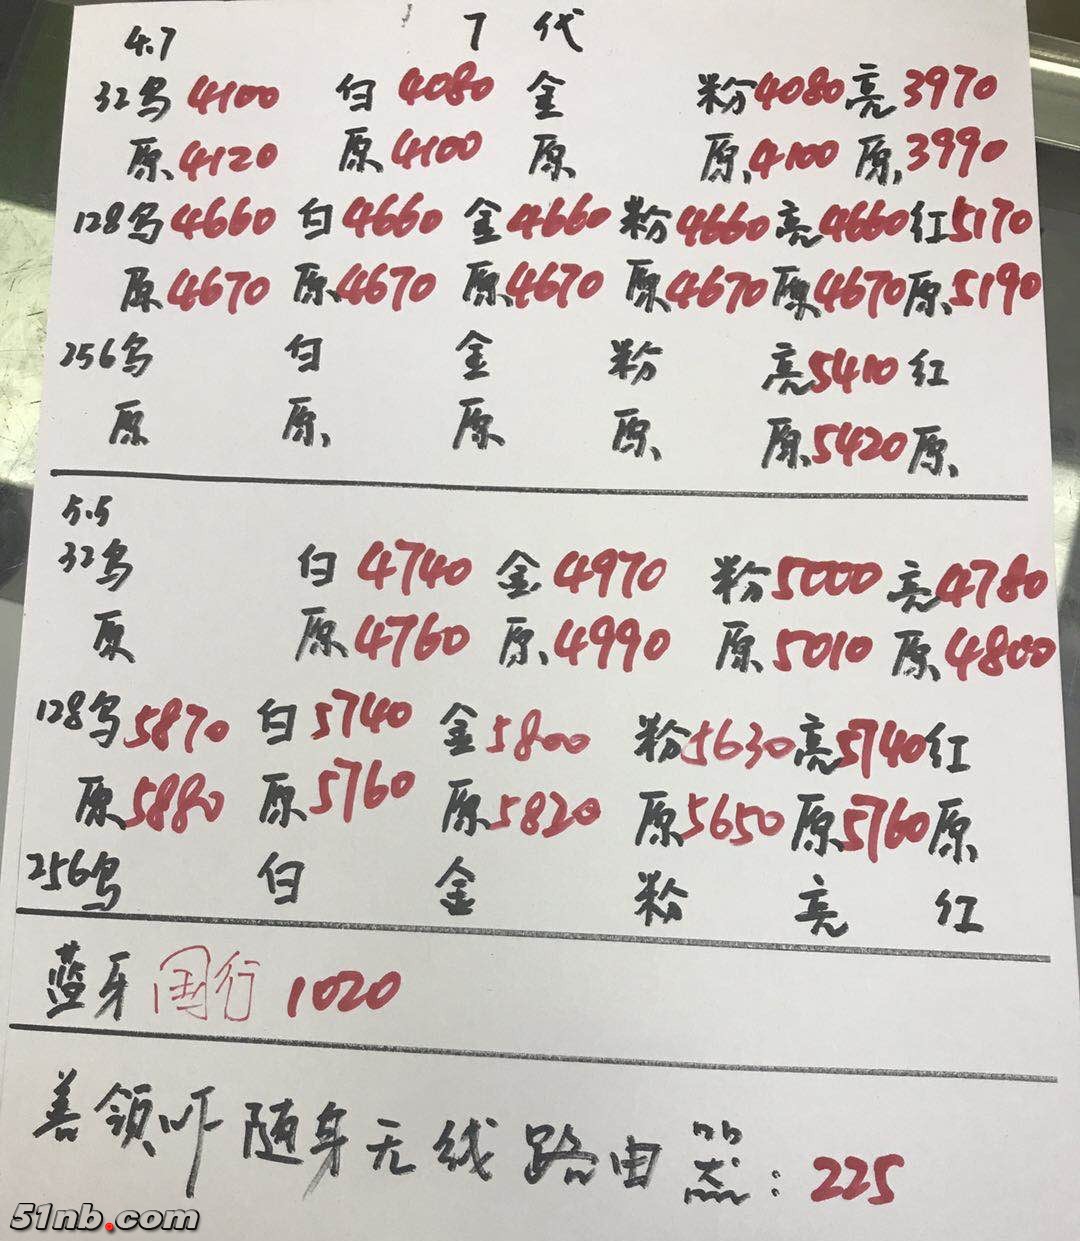 4.7 7 代
32乌4100 白4080 金 粉4080 亮3970
原4120 原4100 原 原4100 原3990
128乌4660 白4660 金4660 粉4660 亮4660 红5170
原4670 原4670 原4670 原4670 原4670 原5190
256乌 白 金 粉 亮5410 红
原 原 原 原 原5420 原
5.5
32乌 白4740 金4970 粉5000 亮4780
原 原4760 原4990 原5010 原4800
128乌5870 白5740 金5800 粉5630 亮5740 红
原5880 原5760 原5820 原5650 原5760 原
256乌 白 金 粉 亮 红
蓝牙 国行 1020
善领吓随车无线路由器：225
51nb.com